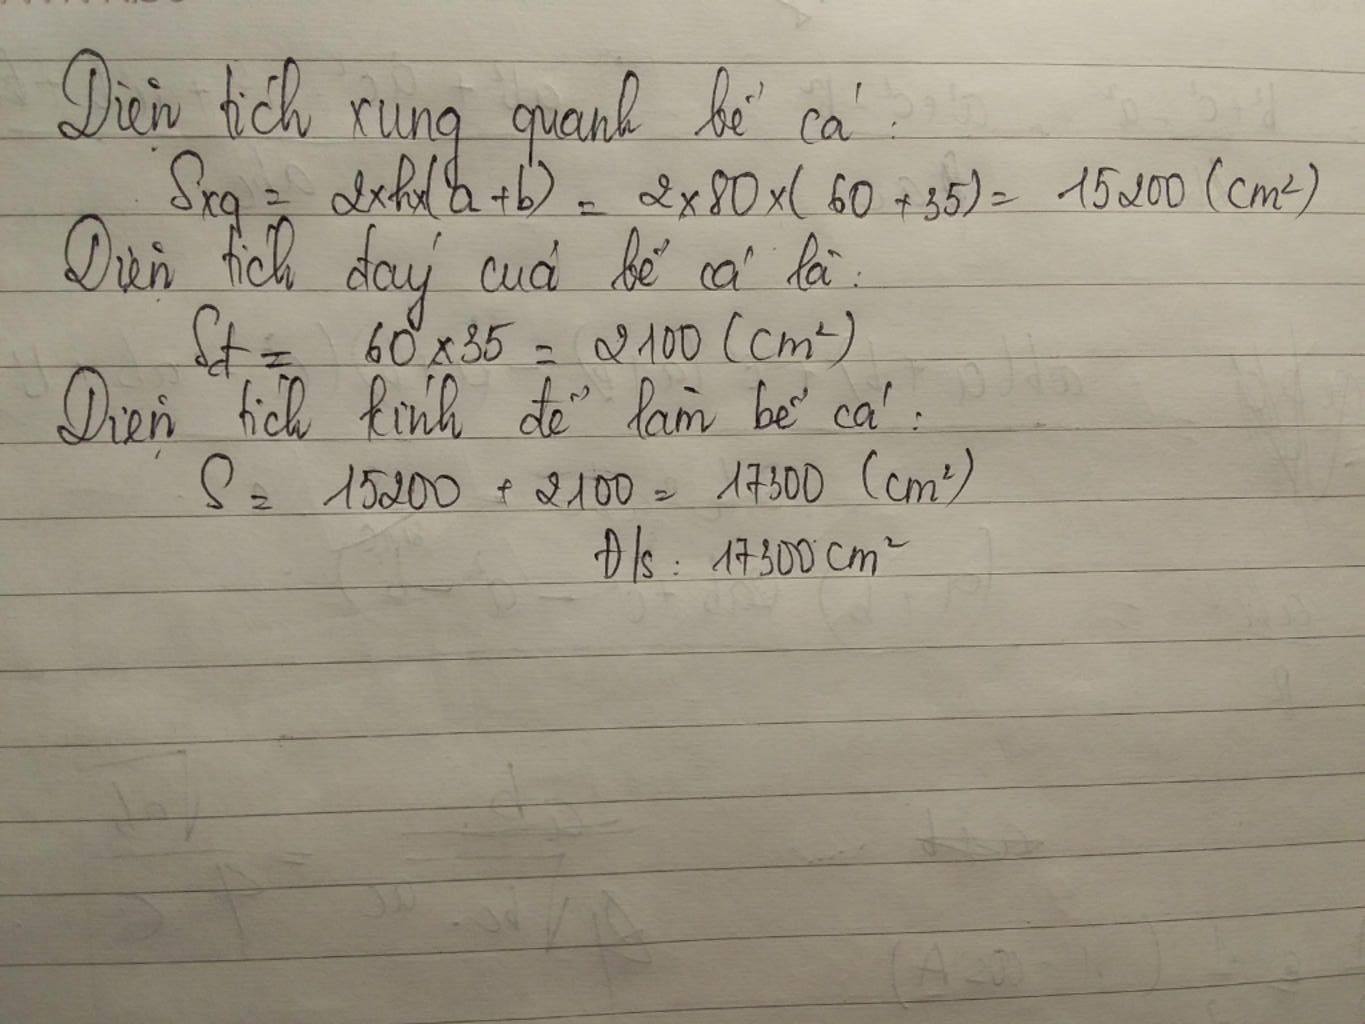 Diện tích xung quanh bể cá:
Sxq = 2xhx(a+b) = 2x80x(60+35) = 15200 (cm²)
Diện tích đáy của bể cá là:
Sđ = 60x35 = 2100 (cm²)
Diện tích kính để làm bể cá:
S = 15200 + 2100 = 17300 (cm²)
Đ/s: 17300 cm²